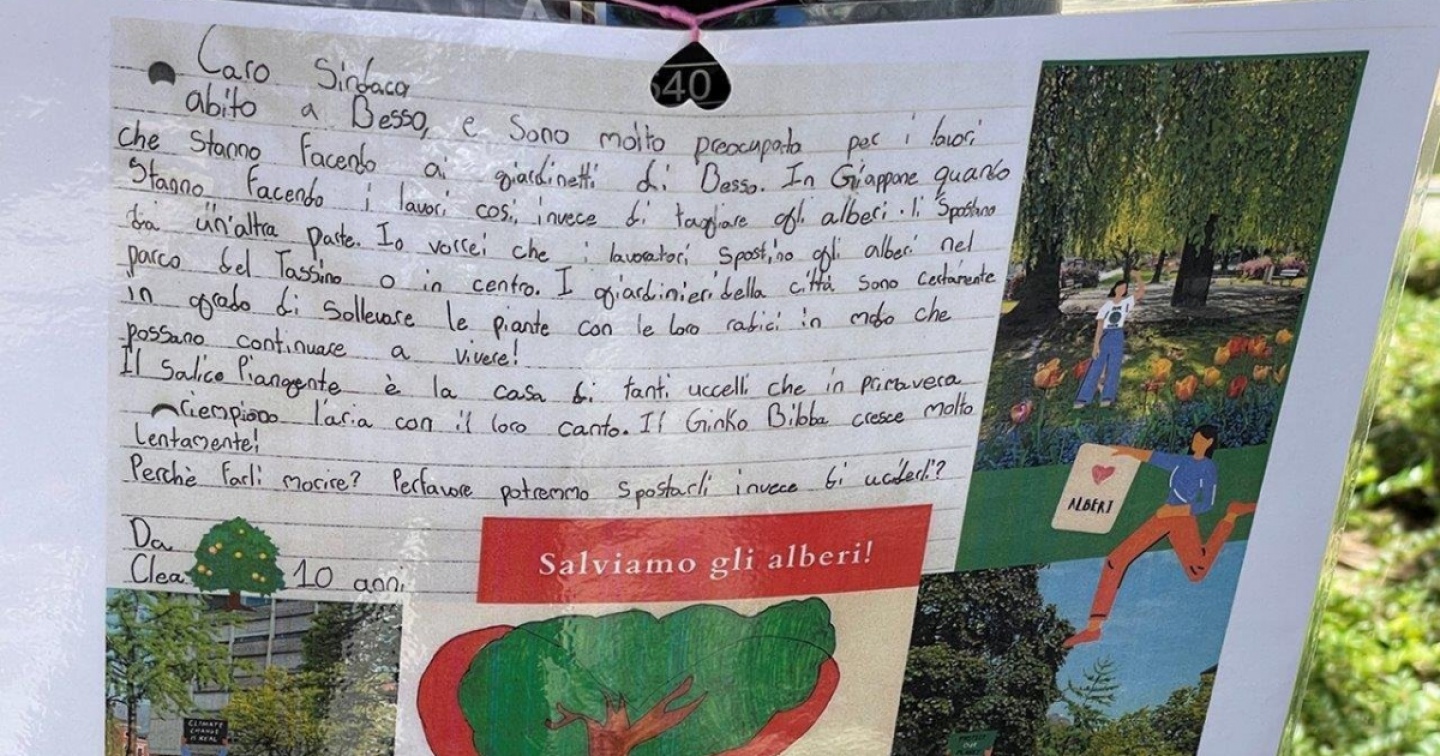 640
Caro Sindaco
abito a Besso, e sono molto preocupata per i lavori
che stanno facendo ai giardinetti di Besso. In Giappone quando
stanno facendo i lavori così, invece di tagliare gli alberi li spostano
da un'altra parte. Io vorrei che i lavoratori spostino gli alberi nel
parco del Tassino o in centro. I giardinieri della città sono certamente
in grado di sollevare le piante con le loro radici in modo che
possano continuare a vivere!
Il Salice Piangente è la casa di tanti uccelli che in primavera
riempiono l'aria con il loro canto. Il Ginko Bibba cresce molto
lentamente!
Perchè farli morire? Perfavore potremmo spostarli invece di uciderli?
Da
Clea 10 anni
Salviamo gli alberi!
ALBERI
CLIMATE
CHANGE
IS REAL